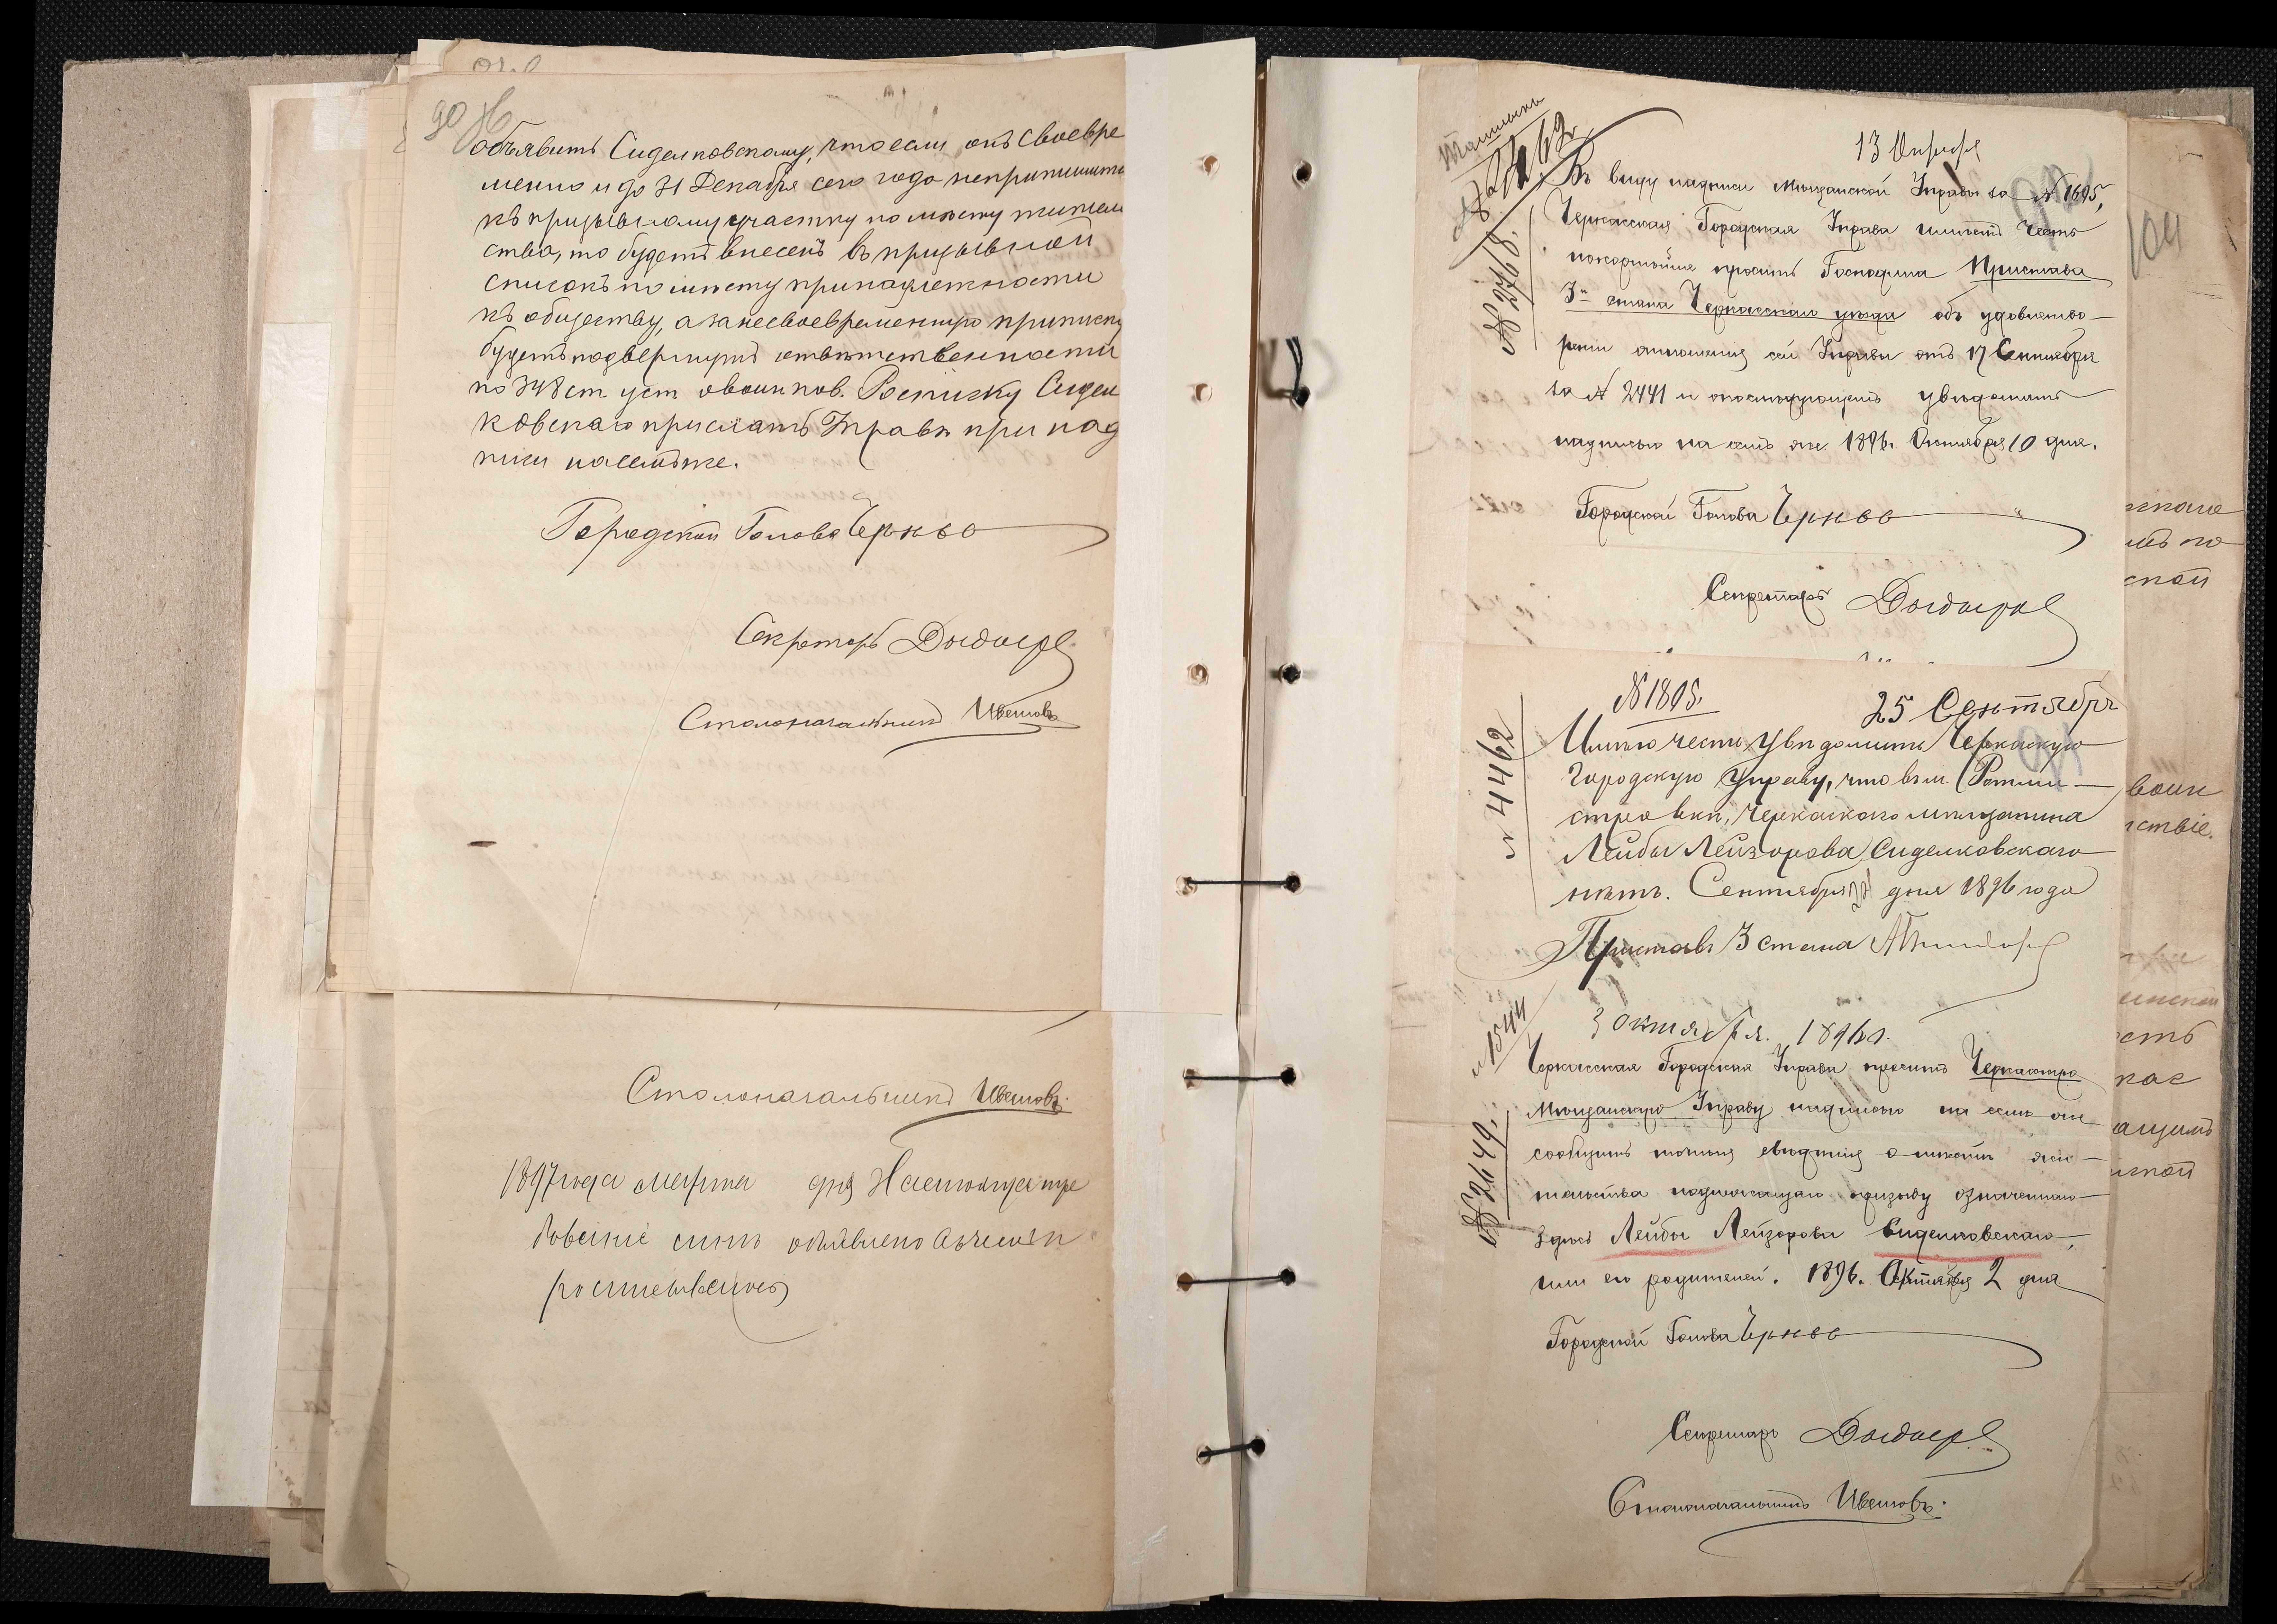 90
объявить Сиделковскому, что если онъ своевре
менно и до 31 Декабря сего года неприпишит
къ призывному участку по мѣсту житель
ства, то будетъ внесенъ въ призывной
списокъ по мѣсту принадлежности
къ обществу, а за несвоевременную приписку
будетъ подвергнутъ отвѣтственности
по 348 ст уст о воин пов. Росписку Сидел
ковскаго прислать Управѣ при над
писи на семъ же.
Городской Голова
Секретарь
Столоначальникъ Цвѣтовъ
Столоначальникъ Цвѣтовъ.
1897 года Марта дня Настоящее тре
бованіе симъ объявлено
104
13 Октября
№ 2768.
Въ виду надписи Мѣщанской Управы за № 1695,
Черкасская Городская Управа имѣетъ честь
покорнѣйше просить Господина Пристава
3го стана Черкасскаго уѣзда объ удовлетво-
реніи отношенія сей Управы отъ 17 Сентября
за № 2441 и опослѣдующемъ увѣдомить
надписью на семъ же. 1896. Октября 10 дня.
Городской Голова
Секретарь
№ 1805.
25 Сентябрь
№ 4462
Имѣю честь увѣдомить Черкаскую
Городскую Управу, что въ м. Ротми-
стровкѣ, Черкаскаго мѣщанина
Лейбы Лейзорова Сиделковскаго
нѣтъ. Сентября дня 1896 года
Приставъ 3 стана
№ 1544
3 Октября. 1896 г.
№ 2649.
Черкасская Городская Управа проситъ Черкасскую
Мѣщанскую Управу надписью на семъ же
сообщить точныя свѣдѣнія о мѣстѣ жи-
тельства подлежащаго призыву означеннаго
здѣсь Лейбы Лейзорова Сиделковскаго,
или его родителей. 1896. Октября 2 дня
Городской Голова
Секретарь
Столоначальникъ Цвѣтовъ.